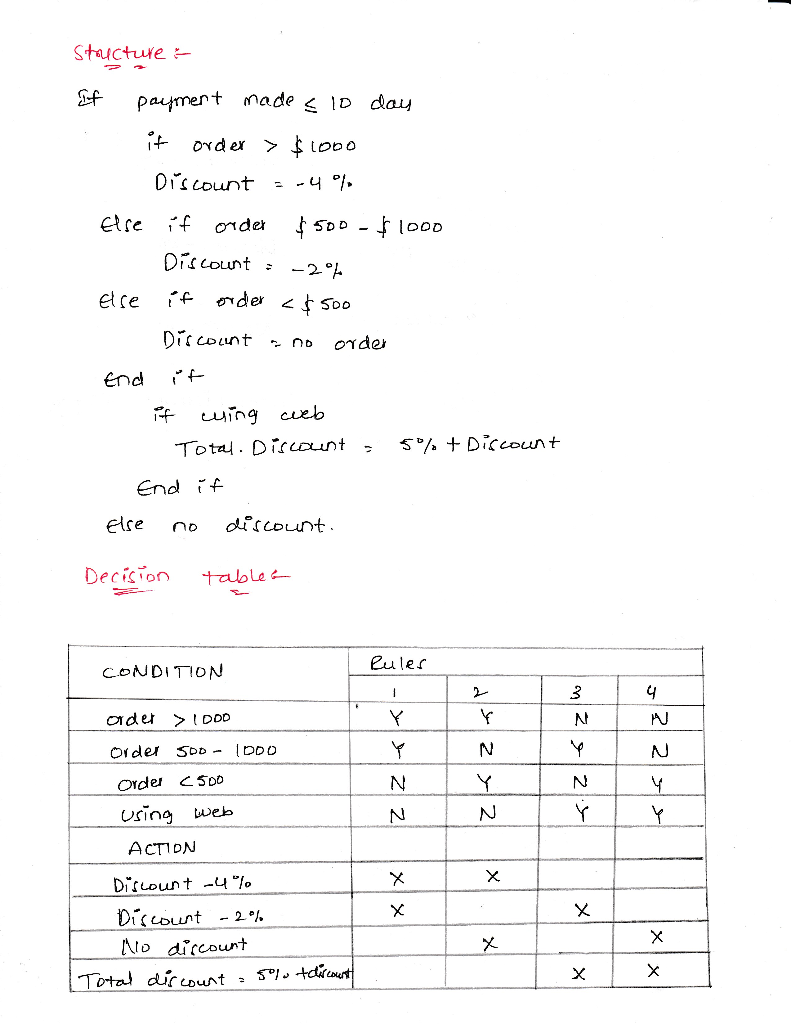 Structure :-
If payment made ≤ 10 day
if order > $1000
Discount = -4 %
Else if order $500 - $1000
Discount = -2%
else if order < $500
Discount = no order
End if
if using web
Total. Discount = 5% + Discount
End if
else no discount.
Decision table :-
CONDITION Rules
1 2 3 4
order > 1000 Y Y N N
Order 500 - 1000 Y N Y N
Order < 500 N Y N Y
Using web N N Y Y
ACTION
Discount -4% X X
Discount - 2% X X
No discount X X
Total discount = 5% +discount X X